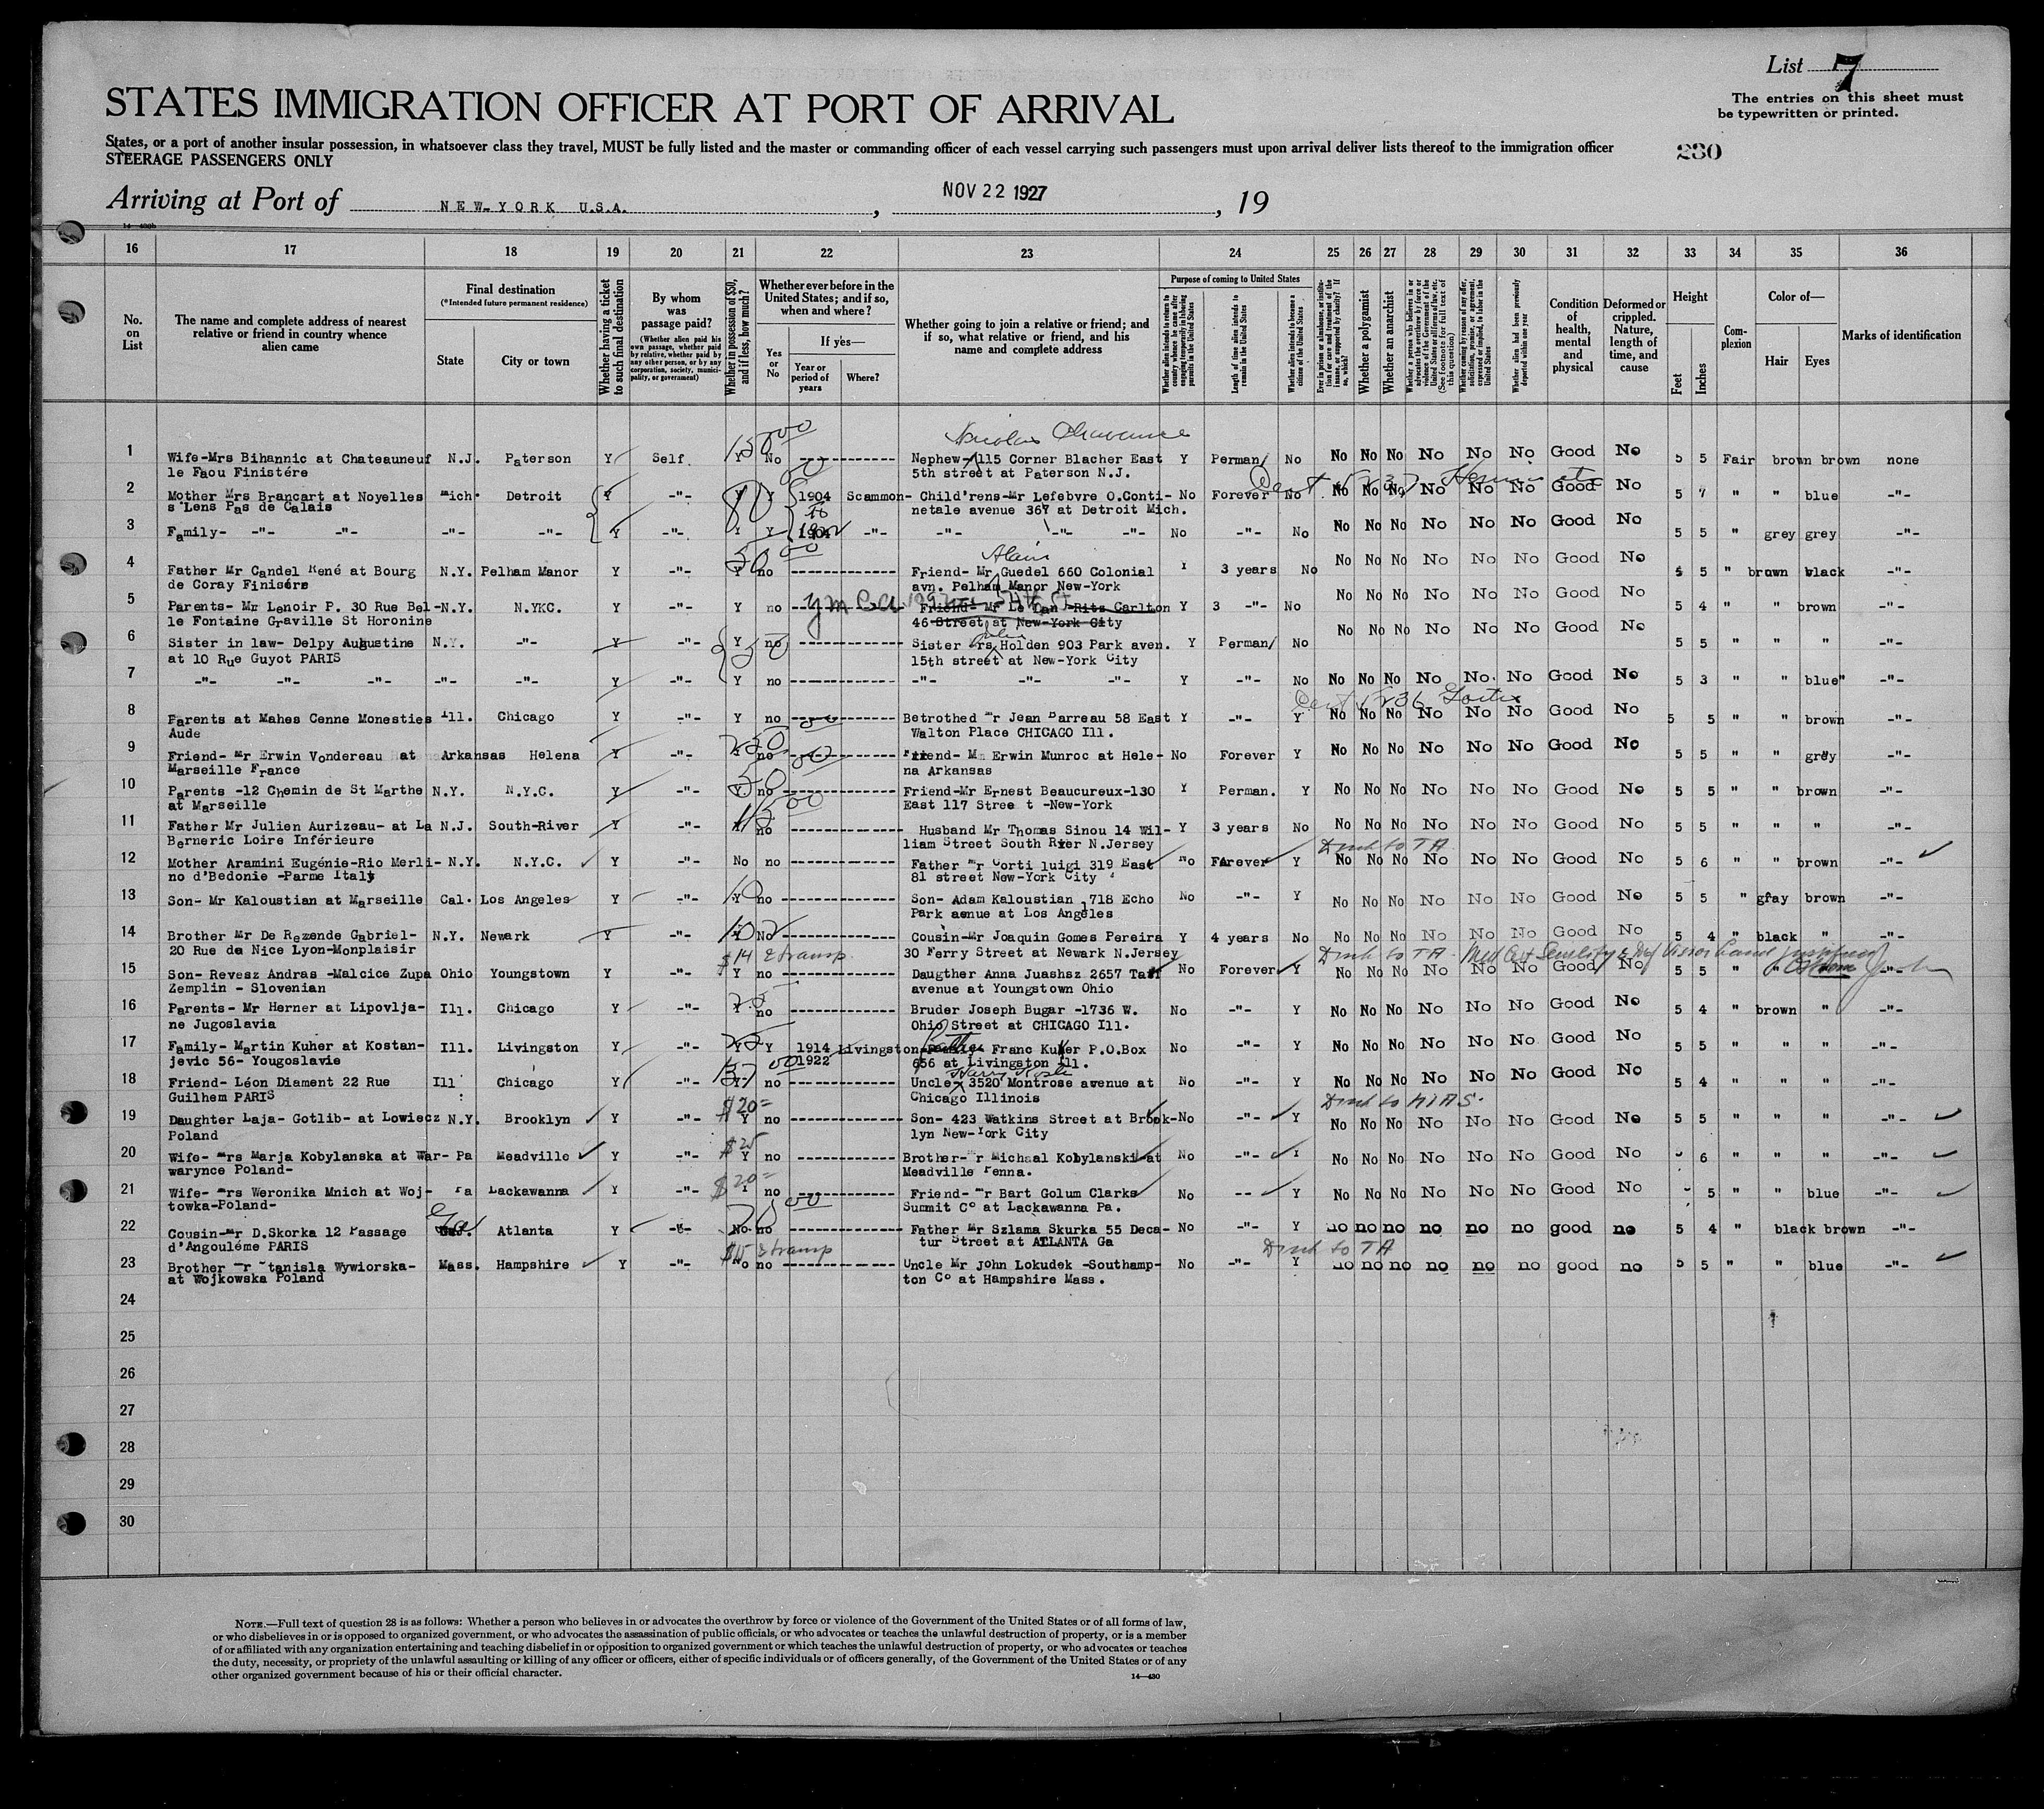 List 7
The entries on this sheet must
be typewritten or printed.
STATES IMMIGRATION OFFICER AT PORT OF ARRIVAL
States, or a port of another insular possession, in whatsoever class they travel, MUST be fully listed and the master or commanding officer of each vessel carrying such passengers must upon arrival deliver lists thereof to the immigration officer
STEERAGE PASSENGERS ONLY
230
Arriving at Port of NEW-YORK U.S.A. , NOV 22 1927 , 19
16 17 18 19 20 21 22 23 24 25 26 27 28 29 30 31 32 33 34 35 36
No. on List
The name and complete address of nearest relative or friend in country whence alien came
Final destination
(*Intended future permanent residence)
State
City or town
Whether having a ticket to such final destination
By whom was passage paid?
(Whether alien paid his own passage, whether paid by relative, whether paid by any other person, or by any corporation, society, municipality, or government)
Whether in possession of $50, and if less, how much?
Whether ever before in the United States; and if so, when and where?
Yes or No
If yes—
Year or period of years
Where?
Whether going to join a relative or friend; and if so, what relative or friend, and his name and complete address
Purpose of coming to United States
Whether alien intends to return to country whence he came after engaging temporarily in laboring pursuits in the United States
Length of time alien intends to remain in the United States
Whether alien intends to become a citizen of the United States
Ever in prison or almshouse, or institution for care and treatment of the insane, or supported by charity? If so, which?
Whether a polygamist
Whether an anarchist
Whether a person who believes in or advocates the overthrow by force or violence of the Government of the United States or all forms of law, etc. (See footnote for full text of this question)
Whether coming by reason of any offer, solicitation, promise, or agreement, expressed or implied, to labor in the United States
Whether alien had been previously deported within one year
Condition of health, mental and physical
Deformed or crippled. Nature, length of time, and cause
Height
Feet
Inches
Complexion
Color of—
Hair
Eyes
Marks of identification
1 Wife-Mrs Bihannic at Chateauneuf N.J. Paterson Y Self Y No ---------- Nephew 115 Corner Blacher East Y Perman/ No No No No No No No Good No 5 5 Fair brown brown none
le Faou Finistére 5th street at Paterson N.J.
2 Mother Mrs Brancart at Noyelles Mich. Detroit Y -"- Y Y 1904 Scammon- Child'rens-Mr Lefebvre O.Conti- No Forever No No No No No No No Good No 5 7 " " blue -"-
s'Lens Pas de Calais netale avenue 367 at Detroit Mich.
3 Family- -"- -"- -"- -"- Y -"- Y Y 1904 -"- -"- -"- -"- No -"- No No No No No No No Good No 5 5 " grey grey -"-
Alain
4 Father Mr Candel René at Bourg N.Y. Pelham Manor Y -"- Y no ---------- Friend- Mr Guedel 660 Colonial Y 3 years No No No No No No No Good No 5 5 " brown black -"-
de Coray Finisére avn. Pelham Manor New-York
5 Parents- Mr Lenoir P. 30 Rue Bel- N.Y. N.YKC. Y -"- Y no YMCA Friend- Mr Le Dan -Ritz Carlton Y 3 -"- No No No No No No No Good No 5 4 " " brown -"-
le Fontaine Graville St Horonine 46 Street at New-York City
6 Sister in law- Delpy Augustine N.Y. -"- Y -"- Y no ---------- Sister Mrs Holden 903 Park aven. Y Perman/ No No No No No No No Good No 5 5 " " " -"-
at 10 Rue Guyot PARIS 15th street at New-York City
7 -"- -"- -"- -"- -"- Y -"- Y no ---------- -"- -"- -"- Y -"- No No No No No No No Good No 5 3 " " blue" -"-
8 Parents at Mahes Cenne Monesties Ill. Chicago Y -"- Y no ---------- Betrothed Mr Jean Barreau 58 East Y -"- Y No No No No No No Good No 5 5 " " brown -"-
Aude Walton Place CHICAGO Ill.
9 Friend- Mr Erwin Vondereau at Arkansas Helena Y -"- Y no ---------- Friend- Mr Erwin Munroc at Hele- No Forever Y No No No No No No Good No 5 5 " " grey -"-
Marseille France na Arkansas
10 Parents -12 Chemin de St Marthe N.Y. N.Y.C. Y -"- Y. no ---------- Friend-Mr Ernest Beaucureux-130 Y Perman. Y No No No No No No Good No 5 5 " " brown -"-
at Marseille East 117 Stree t -New-York
11 Father Mr Julien Aurizeau- at La N.J. South-River Y -"- Y no ---------- Husband Mr Thomas Sinou 14 Wil- Y 3 years No No No No No No No Good No 5 5 " " " -"-
Berneric Loire Inférieure liam Street South River N.Jersey
12 Mother Aramini Eugénie-Rio Merli- N.Y. N.Y.C. Y -"- No no ---------- Father Mr Corti luigi 319 East No Forever Y No No No No No No Good No 5 6 " " brown -"-
no d'Bedonie -Parme Italy 81 street New-York City
13 Son- Mr Kaloustian at Marseille Cal. Los Angeles Y -"- Y no ---------- Son- Adam Kaloustian 718 Echo No -"- Y No No No No No No Good No 5 5 " gray brown -"-
Park aenue at Los Angeles
14 Brother Mr De Rezende Gabriel- N.Y. Newark Y -"- Y No ---------- Cousin-Mr Joaquin Gomes Pereira Y 4 years No No No No No No No Good No 5 4 " black " -"-
20 Rue de Nice Lyon-Monplaisir 30 Ferry Street at Newark N.Jersey
$14
15 Son- Revesz Andras -Malcice Zupa Ohio Youngstown Y -"- Y no ---------- Daugther Anna Juashsz 2657 Taff No Forever Y No No No No No No Good No 5 5 " " -"-
Zemplin - Slovenian avenue at Youngstown Ohio
16 Parents- Mr Herner at Lipovlja- Ill. Chicago Y -"- Y no ---------- Bruder Joseph Bugar -1736 W. No -"- Y No No No No No No Good No 5 4 " brown " -"-
ne Jugoslavia Ohio Street at CHICAGO Ill.
17 Family- Martin Kuher at Kostan- Ill. Livingston Y -"- Y Y 1914 Livingston-Family- Franc Kuher P.O.Box No -"- Y No No No No No No Good No 5 5 " " " -"-
jevic 56- Yougoslavie 1922 656 at Livingston Ill.
18 Friend- Léon Diament 22 Rue Ill Chicago Y -"- Y no ---------- Uncle- 3520 Montrose avenue at No -"- Y No No No No No No Good No 5 4 " " " -"-
Guilhem PARIS Chicago Illinois
$20=
19 Daughter Laja- Gotlib- at Lowiecz N.Y. Brooklyn Y -"- Y no ---------- Son- 423 Watkins Street at Brook- No -"- Y No No No No No No Good No 5 5 " " " -"-
Poland lyn New-York City
$25
20 Wife- Mrs Marja Kobylanska at War- Pa Meadville Y -"- Y no ---------- Brother- Mr Michaal Kobylanski at No -"- Y No No No No No No Good No 6 " " " -"-
warynce Poland- Meadville Penna.
$20=
21 Wife- Mrs Weronika Mnich at Woj- Pa Lackawanna Y -"- Y no ---------- Friend- Mr Bart Golum Clarks No -- Y No No No No No No Good No 5 " " blue -"-
towka-Poland- Summit Co at Lackawanna Pa.
22 Cousin-Mr D.Skorka 12 Passage Ga Atlanta Y -"- No no ---------- Father Mr Szlama Skurka 55 Deca- No -"- Y no no no no no no good no 5 4 " black brown -"-
d'Angouléme PARIS tur Street at ATLANTA Ga
$15
23 Brother Mr Stanisla Wywiorska- Mass. Hampshire Y -"- No no ---------- Uncle Mr John Lokudek -Southamp- No -"- Y no no no no no no good no 5 5 " " blue -"-
at Wojkowska Poland ton Co at Hampshire Mass.
24
25
26
27
28
29
30
NOTE.—Full text of question 28 is as follows: Whether a person who believes in or advocates the overthrow by force or violence of the Government of the United States or of all forms of law,
or who disbelieves in or is opposed to organized government, or who advocates the assassination of public officials, or who advocates or teaches the unlawful destruction of property, or is a member
of or affiliated with any organization entertaining and teaching disbelief in or opposition to organized government or which teaches the unlawful destruction of property, or who advocates or teaches
the duty, necessity, or propriety of the unlawful assaulting or killing of any officer or officers, either of specific individuals or of officers generally, of the Government of the United States or of any
other organized government because of his or their official character.
14—430